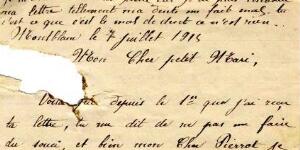 ma lettre tellement ma dents me fait mal, tu
est ce que c'est le mal de dents ce n'est rien
Montblanc le 7 juillet 1915
Mon Cher petit Mari,
depuis le 1er que j'ai reçu
ta lettre, tu me dit de ne pas me faire
du souci, et bien mon Cher Pierrot je